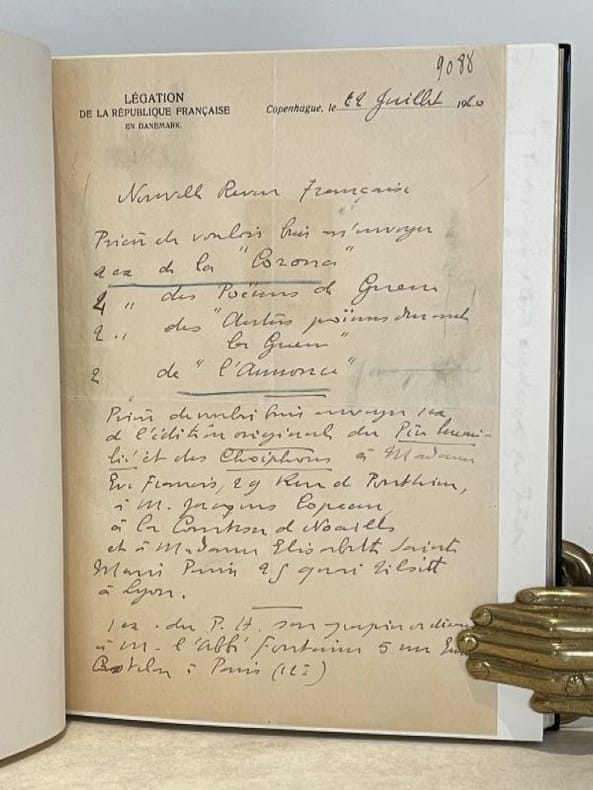 9088
LÉGATION
DE LA RÉPUBLIQUE FRANÇAISE
EN DANEMARK.
Copenhague, le 22 Juillet 1920
Nouvelle Revue Française
Prière de vouloir bien m'envoyer
2 ex de la "Corona"
2 " des Poëmes de Guerre
2 " des "Autres poëmes durant
la Guerre"
2 de "l'Annonce"
Prière de vouloir bien envoyer 1 ex
de l'édition originale du Père humi-
lié et des Choéphores à Madame
Eve Francis, 29 Rue de Ponthieu,
à M. Jacques Copeau,
à la Comtesse de Noailles
et à Madame Elisabeth Sainte
Marie Perrin 25 quai Tilsitt
à Lyon.
1 ex. du P. H. sur papier ordinaire
à M. l'Abbé Fontaine 5 rue
à Paris